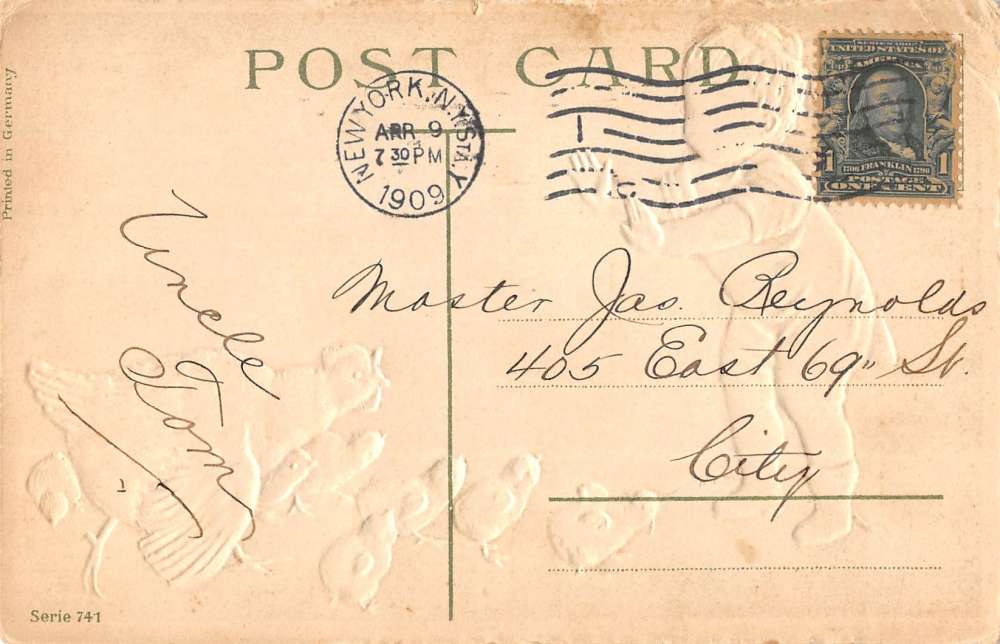 POST CARD
Printed in Germany
NEW YORK, N.Y. STA. Y
APR 9
7 30 PM
1909
1
SERIES 1902
UNITED STATES OF
AMERICA
1706 FRANKLIN 1790
1 POSTAGE 1
ONE CENT
Uncle
Tom
Master Jas. Reynolds
405 East 69" St.
City
Serie 741